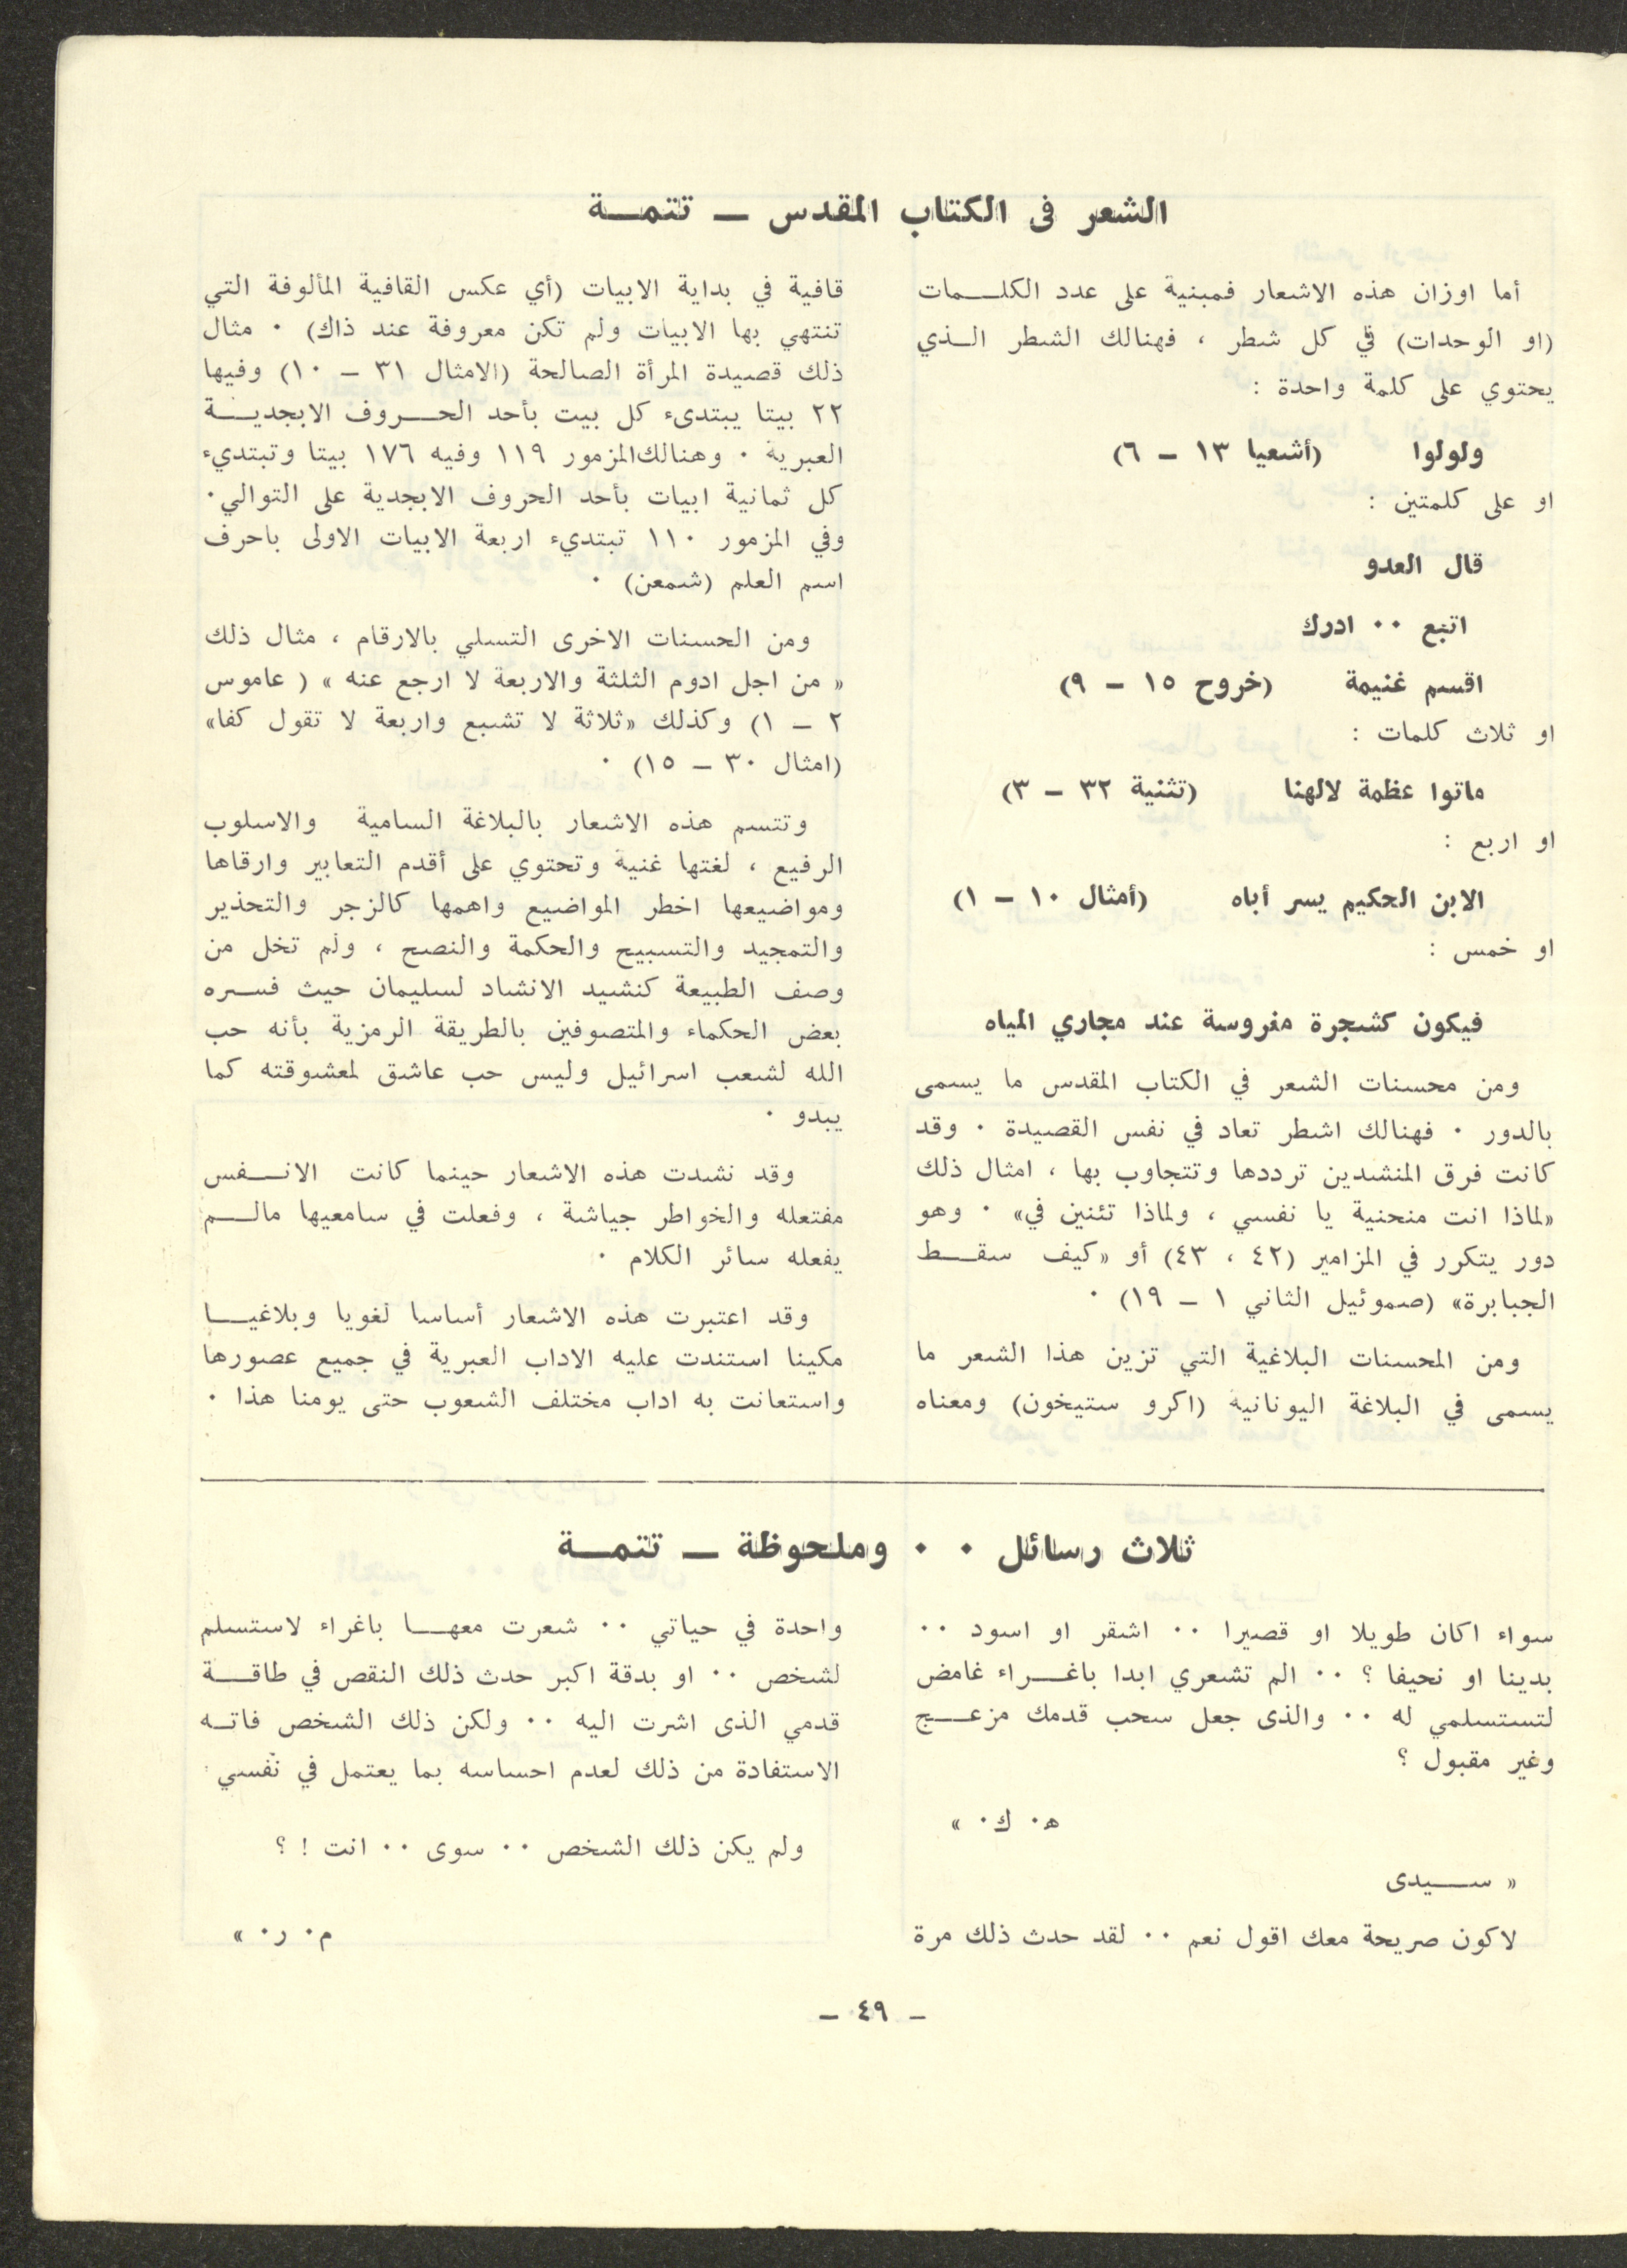 الشعر فى الكتاب المقدس ــ تتمــة
أما اوزان هذه الاشعار فمبنية على عدد الكلــمات
(او الوحدات) في كل شطر ، فهنالك الشطر الـذي
يحتوي على كلمة واحدة :
ولولوا (أشعيا ١٣ ــ ٦)
او على كلمتين :
قال العدو
اتبع ٠٠ ادرك
اقسم غنيمة (خروح ١٥ ــ ٩)
او ثلاث كلمات :
ماتوا عظمة لالهنا (تثنية ٣٢ ــ ٣)
او اربع :
الابن الحكيم يسر أباه (أمثال ١٠ ــ ١)
او خمس :
فيكون كشجرة مغروسة عند مجاري المياه
ومن محسنات الشعر في الكتاب المقدس ما يسمى
بالدور ٠ فهنالك اشطر تعاد في نفس القصيدة ٠ وقد
كانت فرق المنشدين ترددها وتتجاوب بها ، امثال ذلك
«لماذا انت منحنية يا نفسي ، ولماذا تئنين في» ٠ وهو
دور يتكرر في المزامير (٤٢ ، ٤٣) أو «كيف سقــط
الجبابرة» (صموئيل الثاني ١ ــ ١٩) ٠
ومن المحسنات البلاغية التي تزين هذا الشعر ما
يسمى في البلاغة اليونانية (اكرو ستيخون) ومعناه
قافية في بداية الابيات (أي عكس القافية المألوفة التي
تنتهي بها الابيات ولم تكن معروفة عند ذاك) ٠ مثال
ذلك قصيدة المرأة الصالحة (الامثال ٣١ ــ ١٠) وفيها
٢٢ بيتا يبتدىء كل بيت بأحد الحــروف الابجديــة
العبرية ٠ وهنالك المزمور ١١٩ وفيه ١٧٦ بيتا وتبتديء
كل ثمانية ابيات بأحد الحروف الابجدية على التوالي٠
وفي المزمور ١١٠ تبتديء اربعة الابيات الاولى باحرف
اسم العلم (شمعن) ٠
ومن الحسنات الاخرى التسلي بالارقام ، مثال ذلك
« من اجل ادوم الثلثة والاربعة لا ارجع عنه » ( عاموس
٢ ــ ١) وكذلك «ثلاثة لا تشبع واربعة لا تقول كفا»
(امثال ٣٠ ــ ١٥) ٠
وتتسم هذه الاشعار بالبلاغة السامية والاسلوب
الرفيع ، لغتها غنية وتحتوي على أقدم التعابير وارقاها
ومواضيعها اخطر المواضيع واهمها كالزجر والتحذير
والتمجيد والتسبيح والحكمة والنصح ، ولم تخل من
وصف الطبيعة كنشيد الانشاد لسليمان حيث فســره
بعض الحكماء والمتصوفين بالطريقة الرمزية بأنه حب
الله لشعب اسرائيل وليس حب عاشق لمعشوقته كما
يبدو ٠
وقد نشدت هذه الاشعار حينما كانت الانــفس
مفتعله والخواطر جياشة ، وفعلت في سامعيها مالــم
يفعله سائر الكلام ٠
وقد اعتبرت هذه الاشعار أساسا لغويا وبلاغيــا
مكينا استندت عليه الاداب العبرية في جميع عصورها
واستعانت به اداب مختلف الشعوب حتى يومنا هذا ٠
ثلاث رسائل ٠ ٠ وملحوظة ــ تتمــة
سواء اكان طويلا او قصيرا ٠٠ اشقر او اسود ٠٠
بدينا او نحيفا ؟ ٠٠ الم تشعري ابدا باغــراء غامض
لتستسلمي له ٠٠ والذى جعل سحب قدمك مزعــج
وغير مقبول ؟
ه٠ ك٠ »
« ســيدى
لاكون صريحة معك اقول نعم ٠٠ لقد حدث ذلك مرة
واحدة في حياتي ٠٠ شعرت معهــا باغراء لاستسلم
لشخص ٠٠ او بدقة اكبر حدث ذلك النقص في طاقــة
قدمي الذى اشرت اليه ٠٠ ولكن ذلك الشخص فاتـه
الاستفادة من ذلك لعدم احساسه بما يعتمل في نفسي
ولم يكن ذلك الشخص ٠٠ سوى ٠٠ انت ! ؟
م٠ ر٠ »
ــ ٤٩ ــ